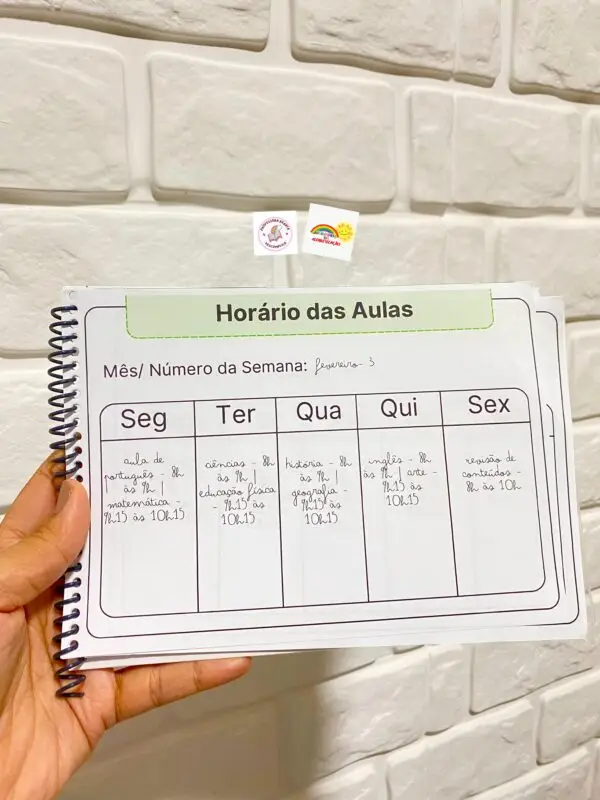 Horário das Aulas
Mês/ Número da Semana: fevereiro 3
Seg
Ter
Qua
Qui
Sex
aula de
português - 8h
às 9h |
matemática -
9h15 às 10h15
ciências - 8h
às 9h |
educação física
- 9h15 às
10h15
história - 8h
às 9h |
geografia -
9h15 às
10h15
inglês - 8h
às 9h | arte -
9h15 às
10h15
revisão de
conteúdos -
8h às 10h